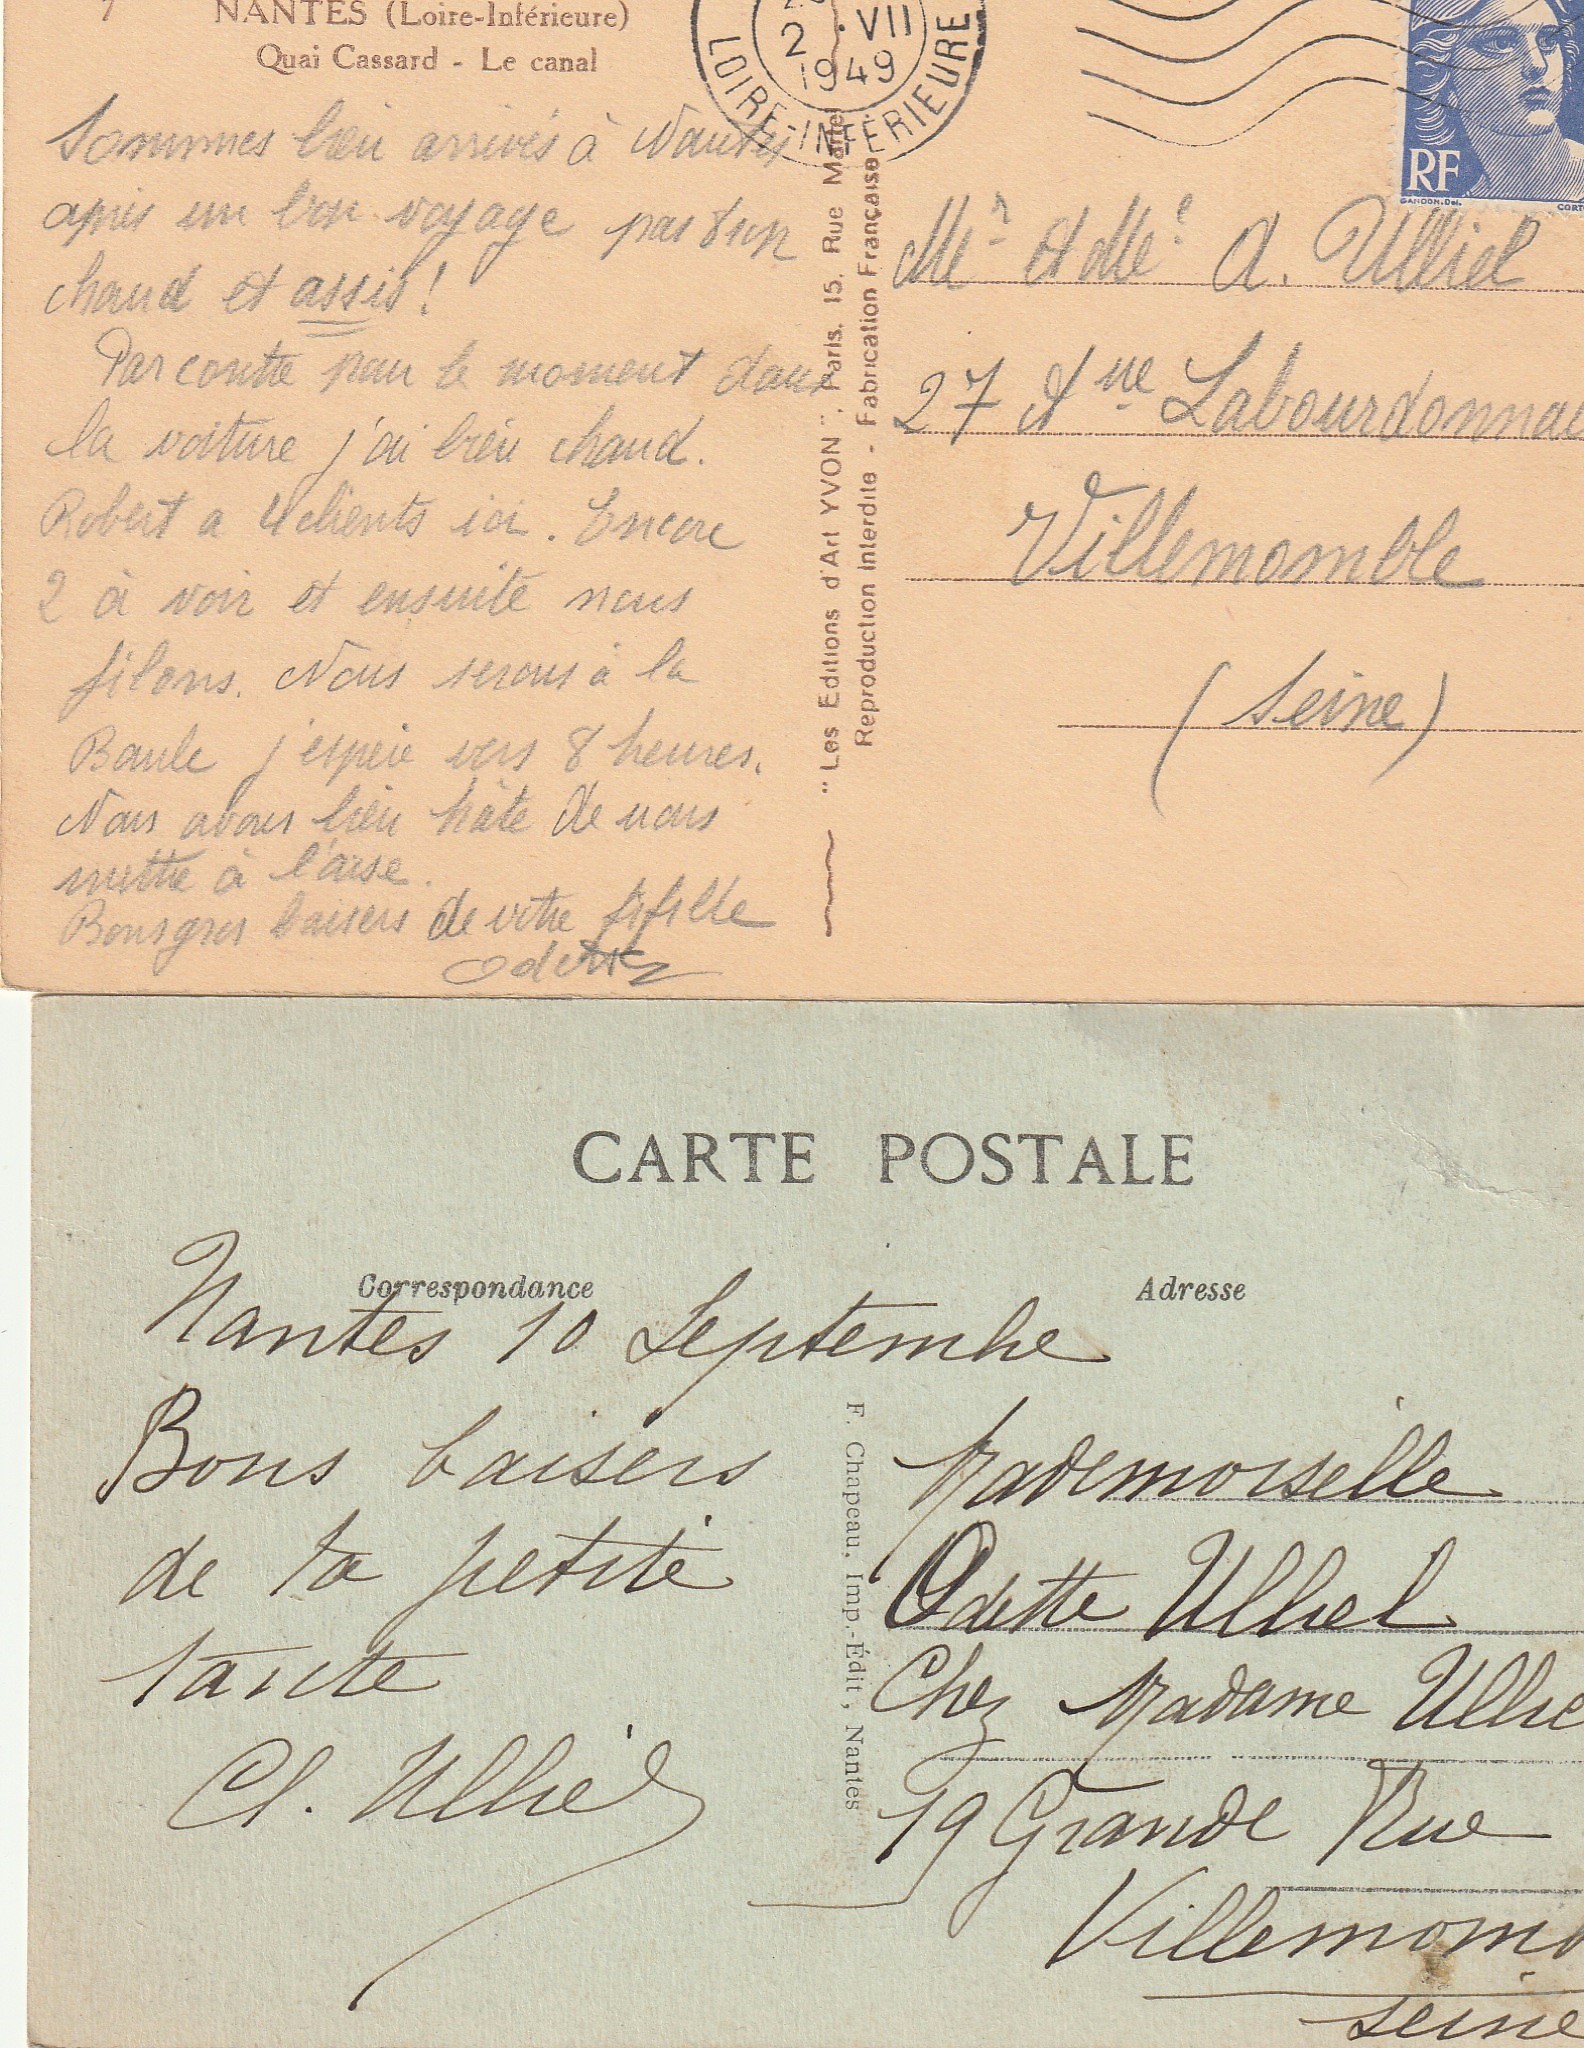 NANTES (Loire-Inférieure)
Quai Cassard - Le canal
2 VII
1949
LOIRE-INFÉRIEURE
RF
GANDON.Del.
CORT
Sommes bien arrivés à Nantes
après un bon voyage pas trop
chaud et assis !
Par contre pour le moment dans
la voiture j'ai bien chaud.
Robert a 4 clients ici. Encore
2 à voir et ensuite nous
filons. Nous serons à la
Baule j'espère vers 8 heures.
Nous avons bien hâte de nous
mettre à l'aise.
Bons gros baisers de votre fifille
Odette
"Les Editions d'Art YVON", Paris, 15, Rue Martel
Reproduction Interdite - Fabrication Française
Mr et Me A. Ulliel
27 Ane Labourdonnai
Villemomble
(Seine)
CARTE POSTALE
Correspondance
Adresse
Nantes 10 Septembe
Bons baisers
de ta petite
tante
Cl. Ulliel
F. Chapeau, Imp.-Édit., Nantes
Mademoiselle
Odette Ulliel
Chez Madame Ullie
19 Grande Rue
Villemom
Seine